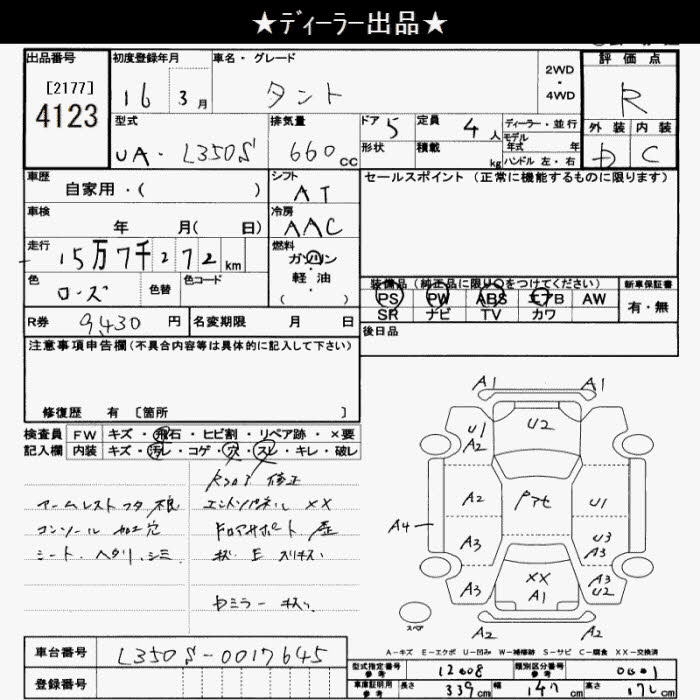 ★ディーラー出品★
出品番号 初度登録年月 車名・グレード 2WD・4WD 評価点
[2177]
4123
16 3月 タント R
型式 排気量 ドア 定員 ディーラー・並行 外装 内装
UA・L350S 660cc 5 4人 モデル年式 年 C
形状 積載 kg ハンドル 左・右
車歴 シフト セールスポイント (正常に機能するものに限ります)
自家用・( ) AT
車検 冷房
年 月( 日) AAC
走行 燃料
15万7千272km ガソリン・軽油( )
色 色替 色コード
ローズ
装備品(純正品に限り○をつけてください) 新車保証書
PS PW ABS エアB AW 有・無
SR ナビ TV カワ
R券 9,430円 名変期限 月 日 後日品
注意事項申告欄(不具合内容等は具体的に記入して下さい)
修復歴 有 〔箇所 〕
検査員 FW キズ・飛石・ヒビ割・リペア跡・×要
記入欄 内装 キズ・汚レ・コゲ・穴・スレ・キレ・破レ
修正
アームレストフタ
エンドパネル ××
コンソール 加工穴
シート ヘタリ、シミ
ミラー
A1 A1
U1 A2 U2
A2 U1
A4 A3 U3 A3
A3 XX A1 A3 U2
A2 A2
スペア
A-キズ E-エクボ U-凹み W-補修跡 S-サビ C-腐食 XX-交換済
車台番号 L350S-0017645
登録番号
型式指定番号 参考 12608 類別区分番号 参考 0001
車庫証明用 参考 長さ 339cm 幅 147cm 高さ 172cm